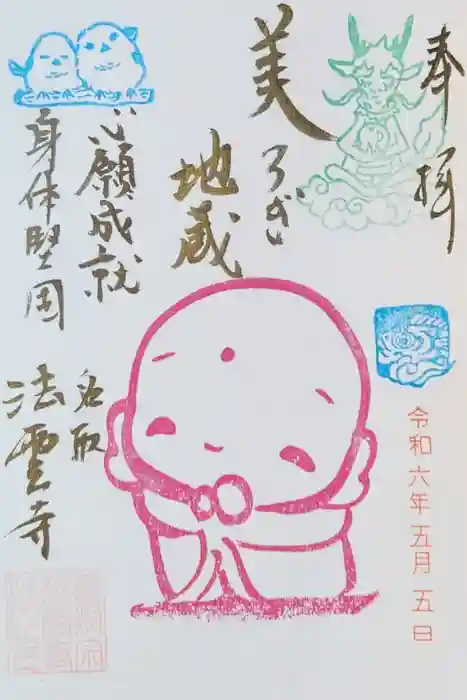 奉拝
令和六年五月五日
美ろい
地蔵
心願成就
身体堅固
名取
法雲寺